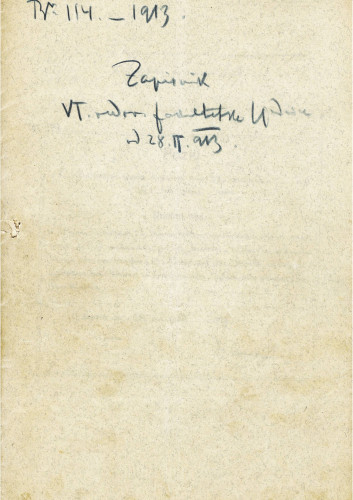 Br. 114. – 1913.
Zapisnik
VI. redov. fakultetske sjednice
od 28. II. 913.